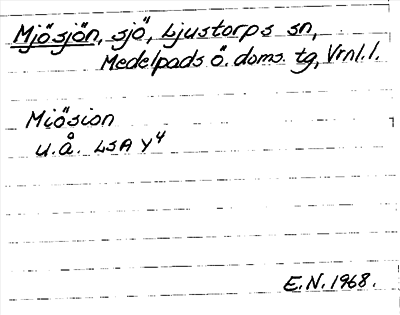 Mjösjön, sjö, Ljustorps sn,
Medelpads ö. doms. tg, Vrnl. l.
Miösion
u.å. LSA Y4
E.N. 1968.